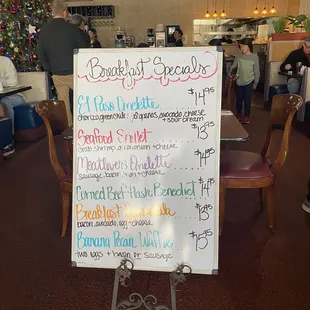 Breakfast Specials
El Paso Omelette $14.95
chorizo, green chile, jalapenos, avocado, cheese
+ sour cream
Seafood Skillet $13.95
crab, shrimp,
Meatlovers Omelette $14.95
sausage, bacon, ham + cheese
Corned Beef Hash Benedict $14.95
Breakfast $13.95
bacon, avocado, egg + cheese
Banana Pecan Waffle $15.95
two eggs + bacon or sausage